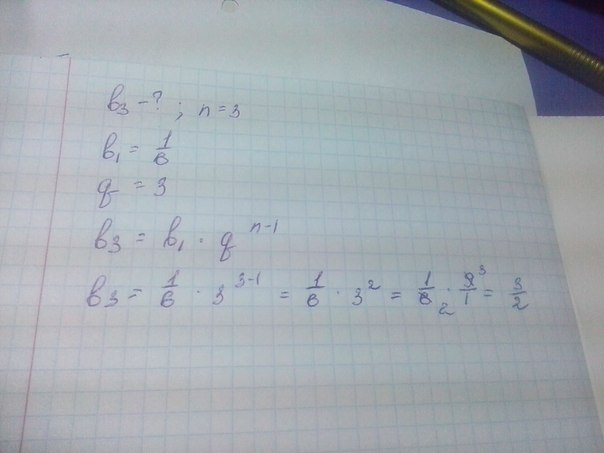 b₃ - ? ; n = 3
b₁ = 1/6
q = 3
b₃ = b₁ · q^(n-1)
b₃ = 1/6 · 3^(3-1) = 1/6 · 3² = 1/6 ₂ · 9/1 ³ = 3/2